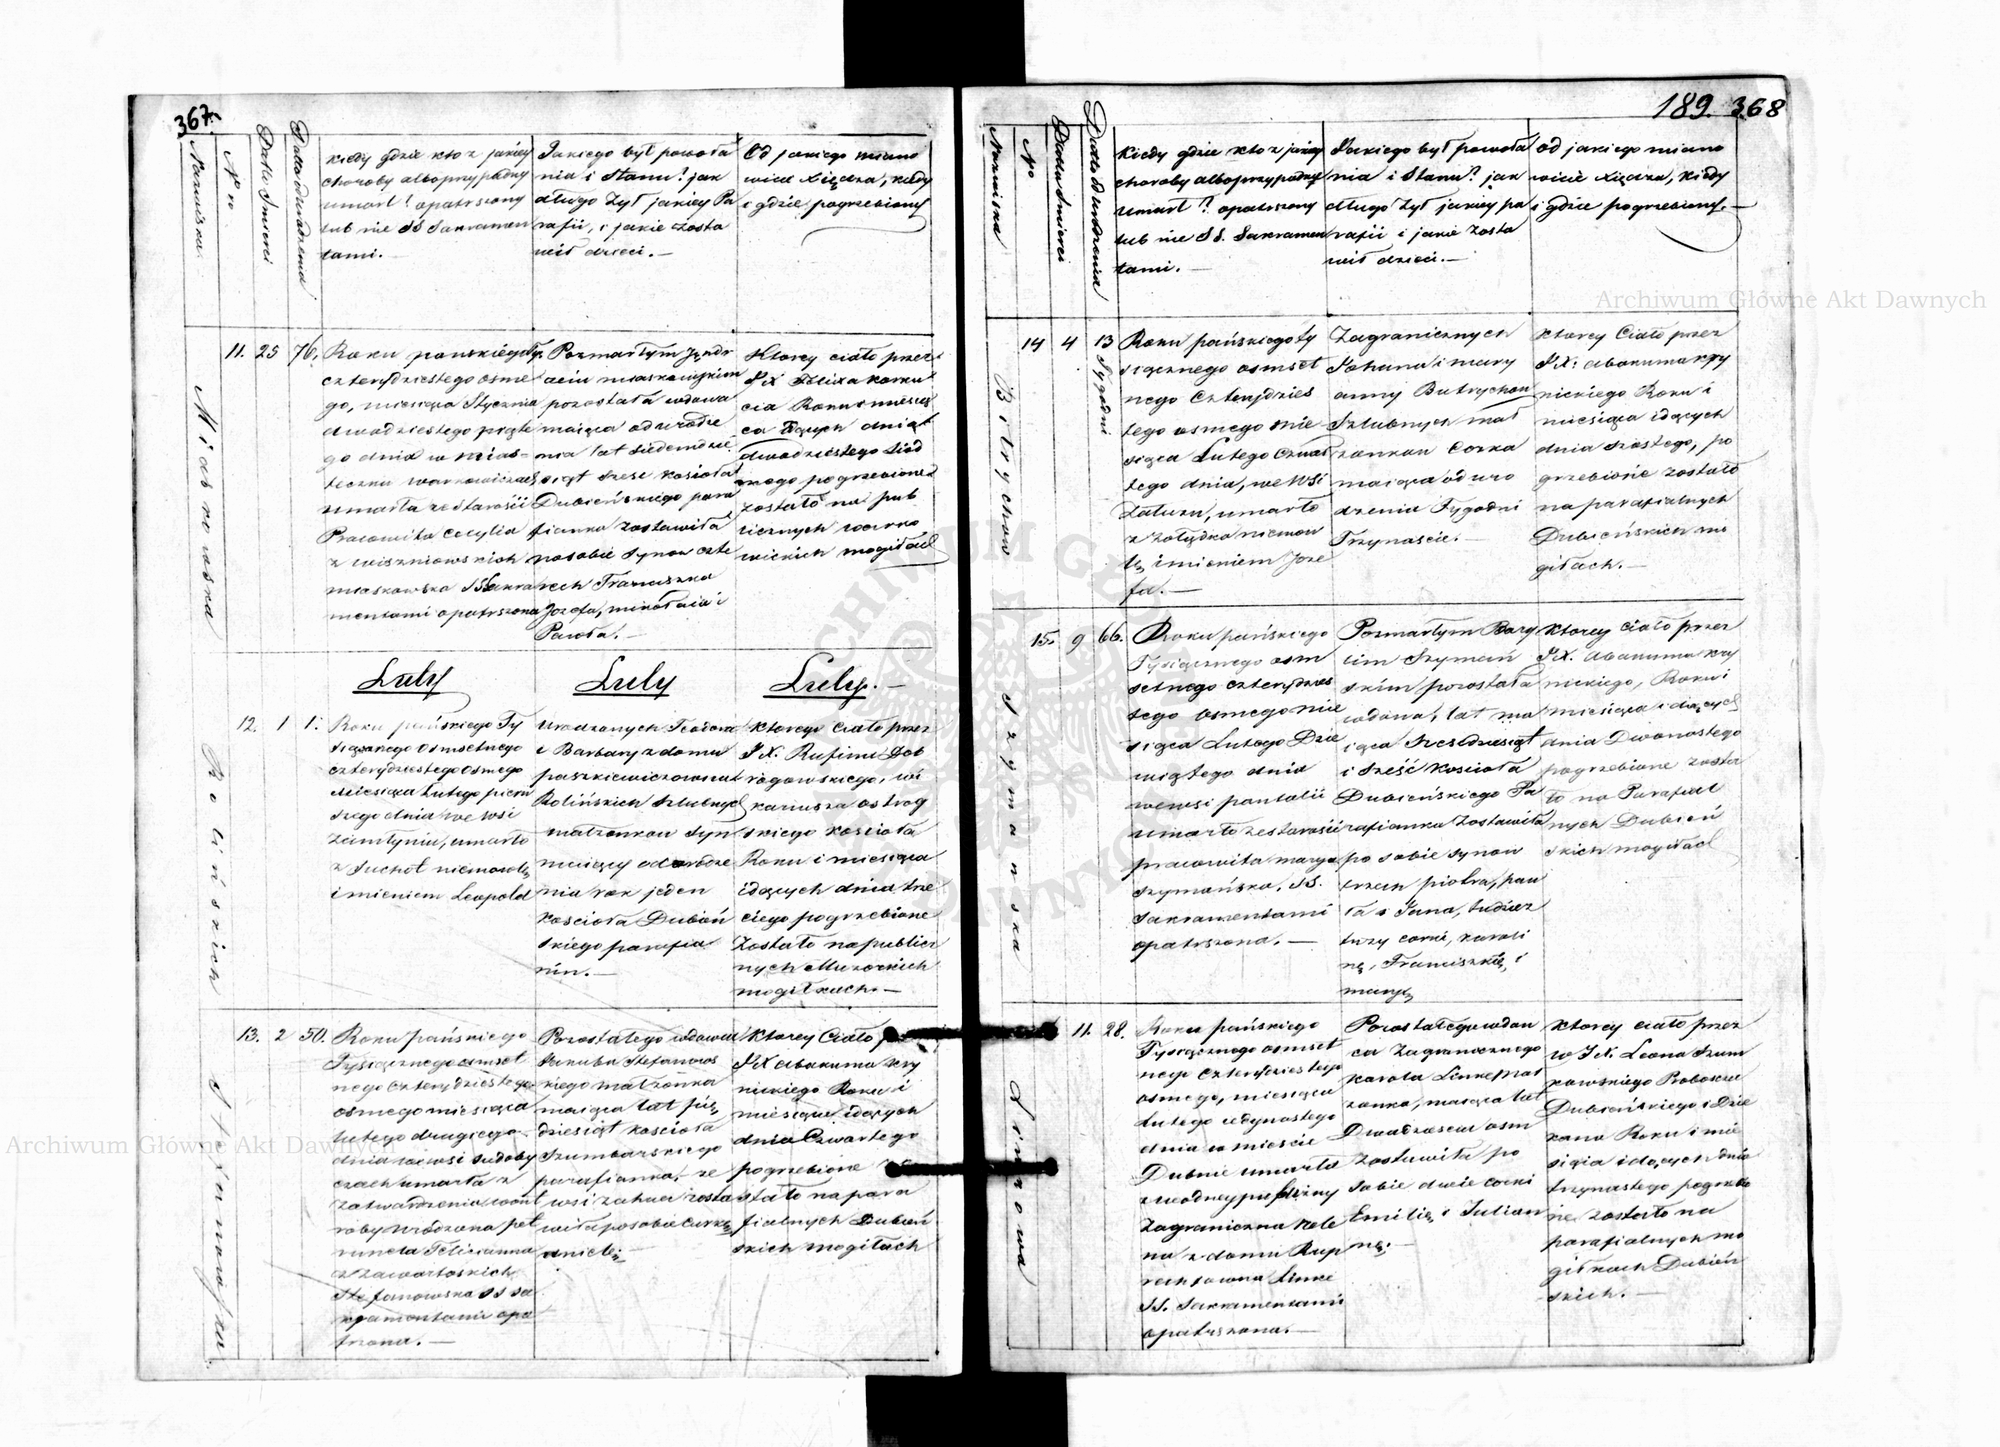 367.
Nazwiska
Nro
Datto Smierci
Datto Urodzenia
Kiedy gdzie kto z jakiey
choroby albo przypadku
umarł? opatrzony
lub nie SS Sakramen
tami.—
Jakiego był powoła
nia i Stanu? jak
długo żył jakiey Pa
rafii, i jakie zosta
wił dzieci.—
Od jakiego miano
wicie Xiędza, kiedy
i gdzie pogrzebiony
Miaskowska
11. 25 76.
Roku pańskiego Ty.
czterydziestego osme
go, miesiąca Stycznia
dwadziestego piąte
go dnia w mias=
teczku Warkowiczach
umarła ze Starości
Pracowita Cecylia
z Wiszniowskich
Miaskowska SSSakra
mentami opatrzona
Pozmarłym Jędr
zeiu Miaskowskim
pozostała wdowa
maiąca od urodze
nia lat siedemdzie
siąt sześć kościoła
Dubieńskiego para
fianka zostawiła
po sobie synow czte
rech Franciszka
Jozefa, Mikołaia i
Pawła.—
Ktorey ciało przez
JX Felixa
Roku i miesią
ca idących dnia
dwadziestego siod
mego pogrzebione
zostało na pub
licznych Warko
wickich mogiłach
Luty Luty Luty.—
Rolińskich
12. 1 1.
Roku pańskiego Ty
siącznego osmsetnego
czterydziestego osmego
Miesiąca Lutego pierw
szego dnia we wsi
umarło
z Suchot niemowlę
imieniem Leopold
Urodzonych Teodora
i Barbary z domu
Paszkiewiczowna
Rolińskich szlubnych
małzonkow Syn
maiący od urodze
nia rok jeden
kościoła Dubień
skiego parafia
nin.—
Ktorego ciało przez
JX. Rufina Dob
rogowskiego, wi
kariusza ostrog
skiego kościoła
Roku i miesiąca
idących dnia trze
ciego pogrzebione
zostało na publicz
nych
mogiłkach.—
Stefanowska
13. 2 50.
Roku pańskiego
Tysiącznego osmset
nego czterydziestego
osmego miesiąca
lutego drugiego
dnia we wsi Sudoby
czach umarła z
zatwardzenia wąt
roby
Felicianna
z Zawartoskich
Stefanowska SS Sa
kramentami opa
trzona.—
Pozostałego wdowca
Jakuba Stefanows
kiego małżonka
maiąca lat pię
dziesiąt kościoła
Szumbarskiego
parafianka, ze
wsi zosta
wiła po sobie Curkę
Anielę.—
Ktorey Ciało
JX Abakuma Kry
nickiego Roku i
miesiąca idących
dnia Czwartego
pogrzebione
stało na para
fialnych Dubień
skich mogiłach
189. 368
Nazwiska
Nro
Datto Smierci
Datto Urodzenia
Kiedy gdzie kto z jakiey
choroby albo przypadku
umarł? opatrzony
lub nie SS. Sakramen
tami.—
Jakiego był powoła
nia i Stanu? jak
długo żył jakiey pa
rafii i jakie zosta
wił dzieci.—
od jakiego miano
wicie Xiędza, kiedy
i gdzie pogrzebiony.—
Bitrychow
14 4 13 Tygodni
Roku pańskiego ty
siącznego osmset
nego czterydzies
tego osmego mie
siąca Lutego czwar
tego dnia, we wsi
umarło
z żołądka niemow
lę imieniem Joze
fa.—
Zagranicznych
Johana i Mary
anny Butrychow
Szlubnych mał
zonkow Corka
maiąca od uro
dzenia Tygodni
Trzynaście.
Ktorey Ciało przez
JX: Abakuma Kry
nickiego Roku i
miesiąca idących
dnia szostego, po
grzebione zostało
na parafialnych
Dubieńskich mo
giłach.—
Szymańska
15. 9 66.
Roku pańskiego
Tysiącznego osm
setnego czterydzies
tego osmego mie
siąca Lutego Dzie
wiątego dnia
we wsi Pantalii
umarła ze starości
pracowita Marya
Szymańska, SS.
Sakramentami
opatrzona.—
Pozmarłym
Szymań
skim pozostała
wdowa, lat ma
iąca Sześdziesiąt
i sześć Kościoła
Dubieńskiego Pa
rafianka zostawiła
po sobie synow
trzech Piotra, Paw
ła i Jana, tudzież
trzy corki, Karoli
nę, Franciszkę, i
Maryę
Ktorey ciało przez
JX. Abakuma Kry
nickiego, Roku i
miesiąca idących
dnia Dwonastego
pogrzebione zosta
ło na Parafial
nych Dubień
skich mogiłach
Linkowa
11. 28.
Roku pańskiego
Tysiącznego osmset
nego czterdziestego
osmego, miesiąca
Lutego jedynastego
dnia w mieście
Dubnie umarła
z wodney puchliny
Zagraniczna Hele
na z domu Rup
rechtowna Linke
SS. Sakramentami
opatrzona.—
Pozostałego wdow
ca Zagranicznego
Karola Linke mał
zonka, maiąca lat
Dwadziescia osm
zostawiła po
sobie dwie corki
Emilię i Julian
nę.—
Ktorey ciało przez
w JX. Leona Szum
kowskiego Proboszcza
Dubieńskiego i Dzie
kana Roku i mie
siąca idących dnia
trzynastego pogrzebio
ne zostało na
parafialnych mo
giłkach Dubień
skich.—
Archiwum Główne Akt Dawnych
Archiwum Główne Akt Dawnych